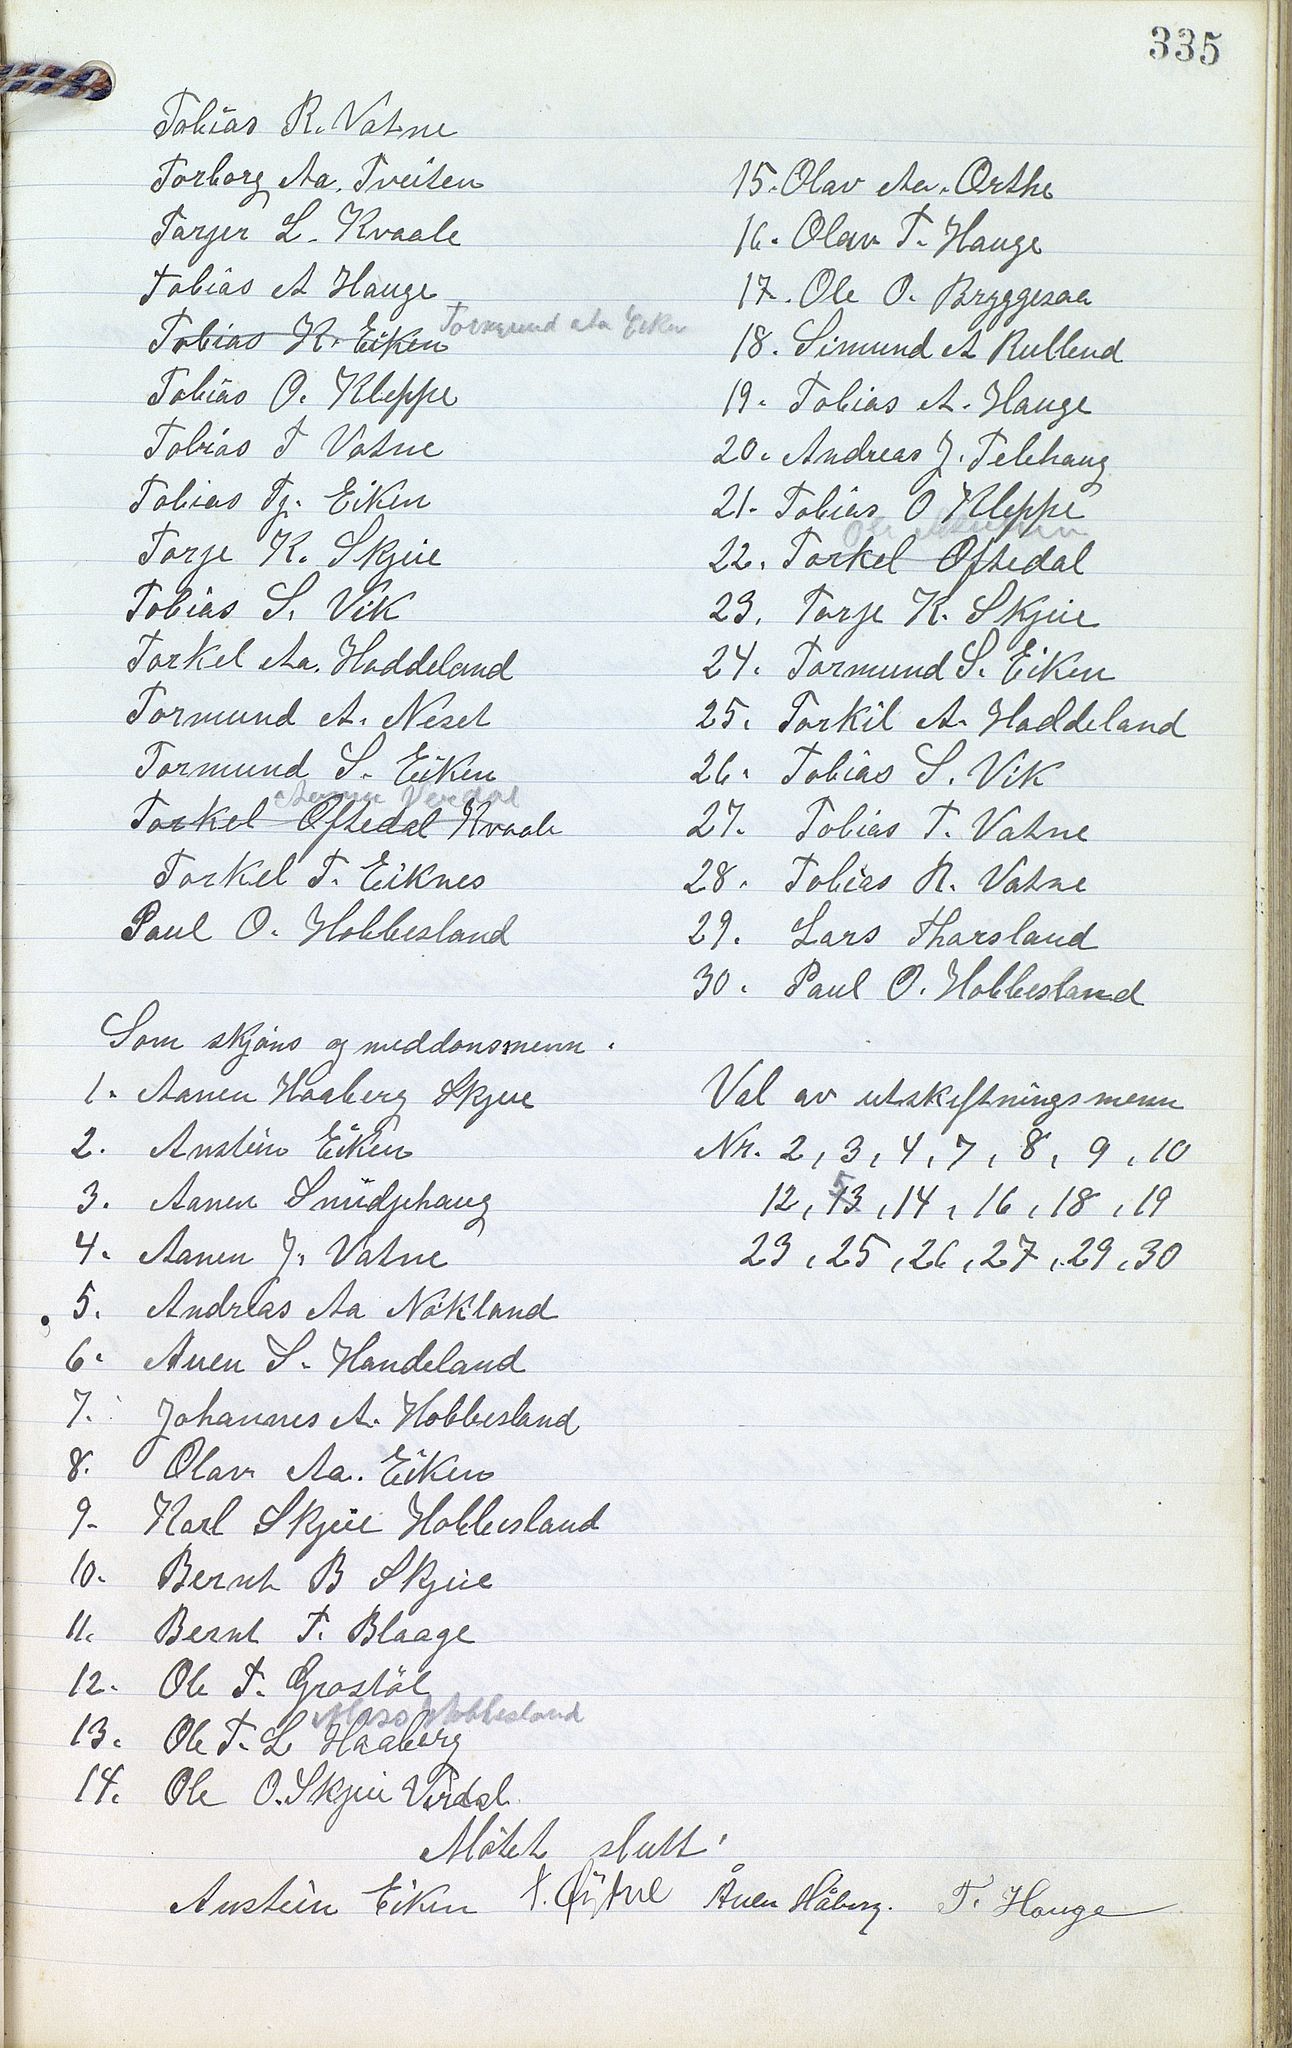 335
Tobias R. Vatne
Torborg Aa. Tveiten
Tarjer L. Kvaale
Tobias A Hauge
Tobias K. Eiken Tormund Aa Eiken
Tobias O. Kleppe
Tobias T Vatne
Tobias Tj. Eiken
Torje K. Skjeie
Tobias S. Vik
Torkel Aa. Haddeland
Tormund A. Neset
Tormund S. Eiken
Torkel Oftedal Kvaale
Torkel T. Eiknes
Paul O. Hobbesland
Som skjøns og meddomsmenn.
1. Aanen Haaberg Skjeie
2. Austein Eiken
3. Aanen Smidjehaug
4. Aanen J. Vatne
5. Andreas Aa Nökland
6. Anen S. Handeland
7. Johannes A. Hobbesland
8. Olav Aa. Eiken
9. Karl Skjeie Hobbesland
10. Bernt B Skjeie
11. Bernt T. Blaage
12. Ole T. Grostöl
Hobbesland
13. Ole T. L Haaberg
14. Ole O. Skjeie Virdal
15. Olav Aa. Orthe
16. Olav T. Hauge
17. Ole O. Bryggesaa
18. Simund A Rullend
19. Tobias A. Hauge
20. Andreas J. Telehaug
21. Tobias O Kleppe
22. Torkel Oftedal
23. Torje K. Skjeie
24. Tormund S. Eiken
25. Torkil A. Haddeland
26. Tobias S. Vik
27. Tobias T. Vatne
28. Tobias R. Vatne
29. Lars Tharsland
30. Paul O. Hobbesland
Val av utskiftningsmenn
Nr. 2, 3, 4, 7, 8, 9, 10
12, 13, 14, 16, 18, 19
23, 25, 26, 27, 29, 30
Mötet slutt!
Austein Eiken T. Anen Håberg. T. Hauge